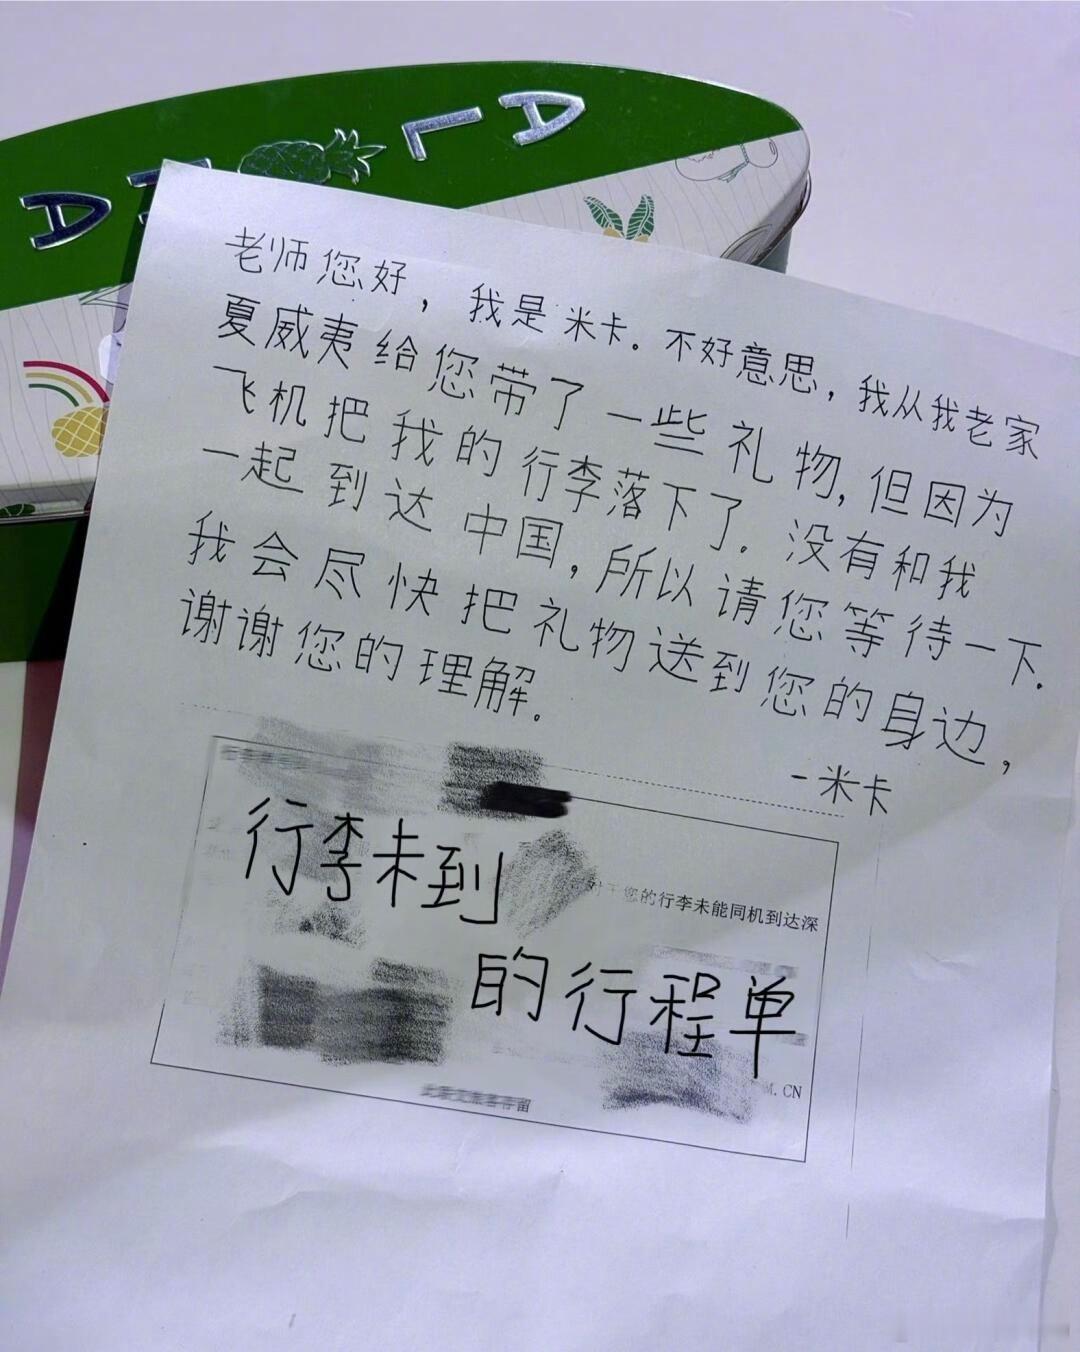 老师您好，我是米卡。不好意思，我从我老家
夏威夷给您带了一些礼物，但因为
飞机把我的行李落下了。没有和我
一起到达中国，所以请您等待一下.
我会尽快把礼物送到您的身边，
谢谢您的理解。
-米卡
行李未到
您的行李未能同机到达深
的行程单
M.CN